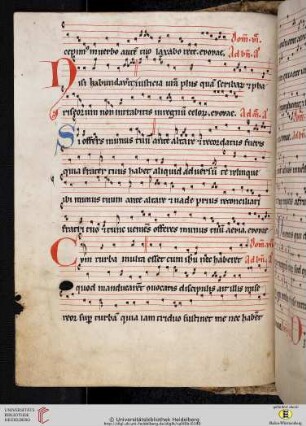 Dom. vi.
cepimus in verbo autem tuo laxabo rete. evovae. Ad bn. a
Nisi habundaverit iusticia vra plus quam scribarum et pha
riseorum non intrabitis in regnum celor. evovae. Ad m. a
Si offers munus tuum ante altare et recordatus fueris
quia frater tuus habet aliquid adversum te relinque
ibi munus tuum ante altare et vade prius reconciliari
fratri tuo et tunc veniens offeres munus tuum aeuia. evovae
Dom. vii
Cum turba multa esset cum ihu nec haberent Ad bn. a
quod manducarent convocatis discipulis ait illis mise
reor sup turbam quia iam triduo sustinent me nec habent
UNIVERSITÄTS-
BIBLIOTHEK
HEIDELBERG
© Universitätsbibliothek Heidelberg
gefördert durch
Baden-Württemberg